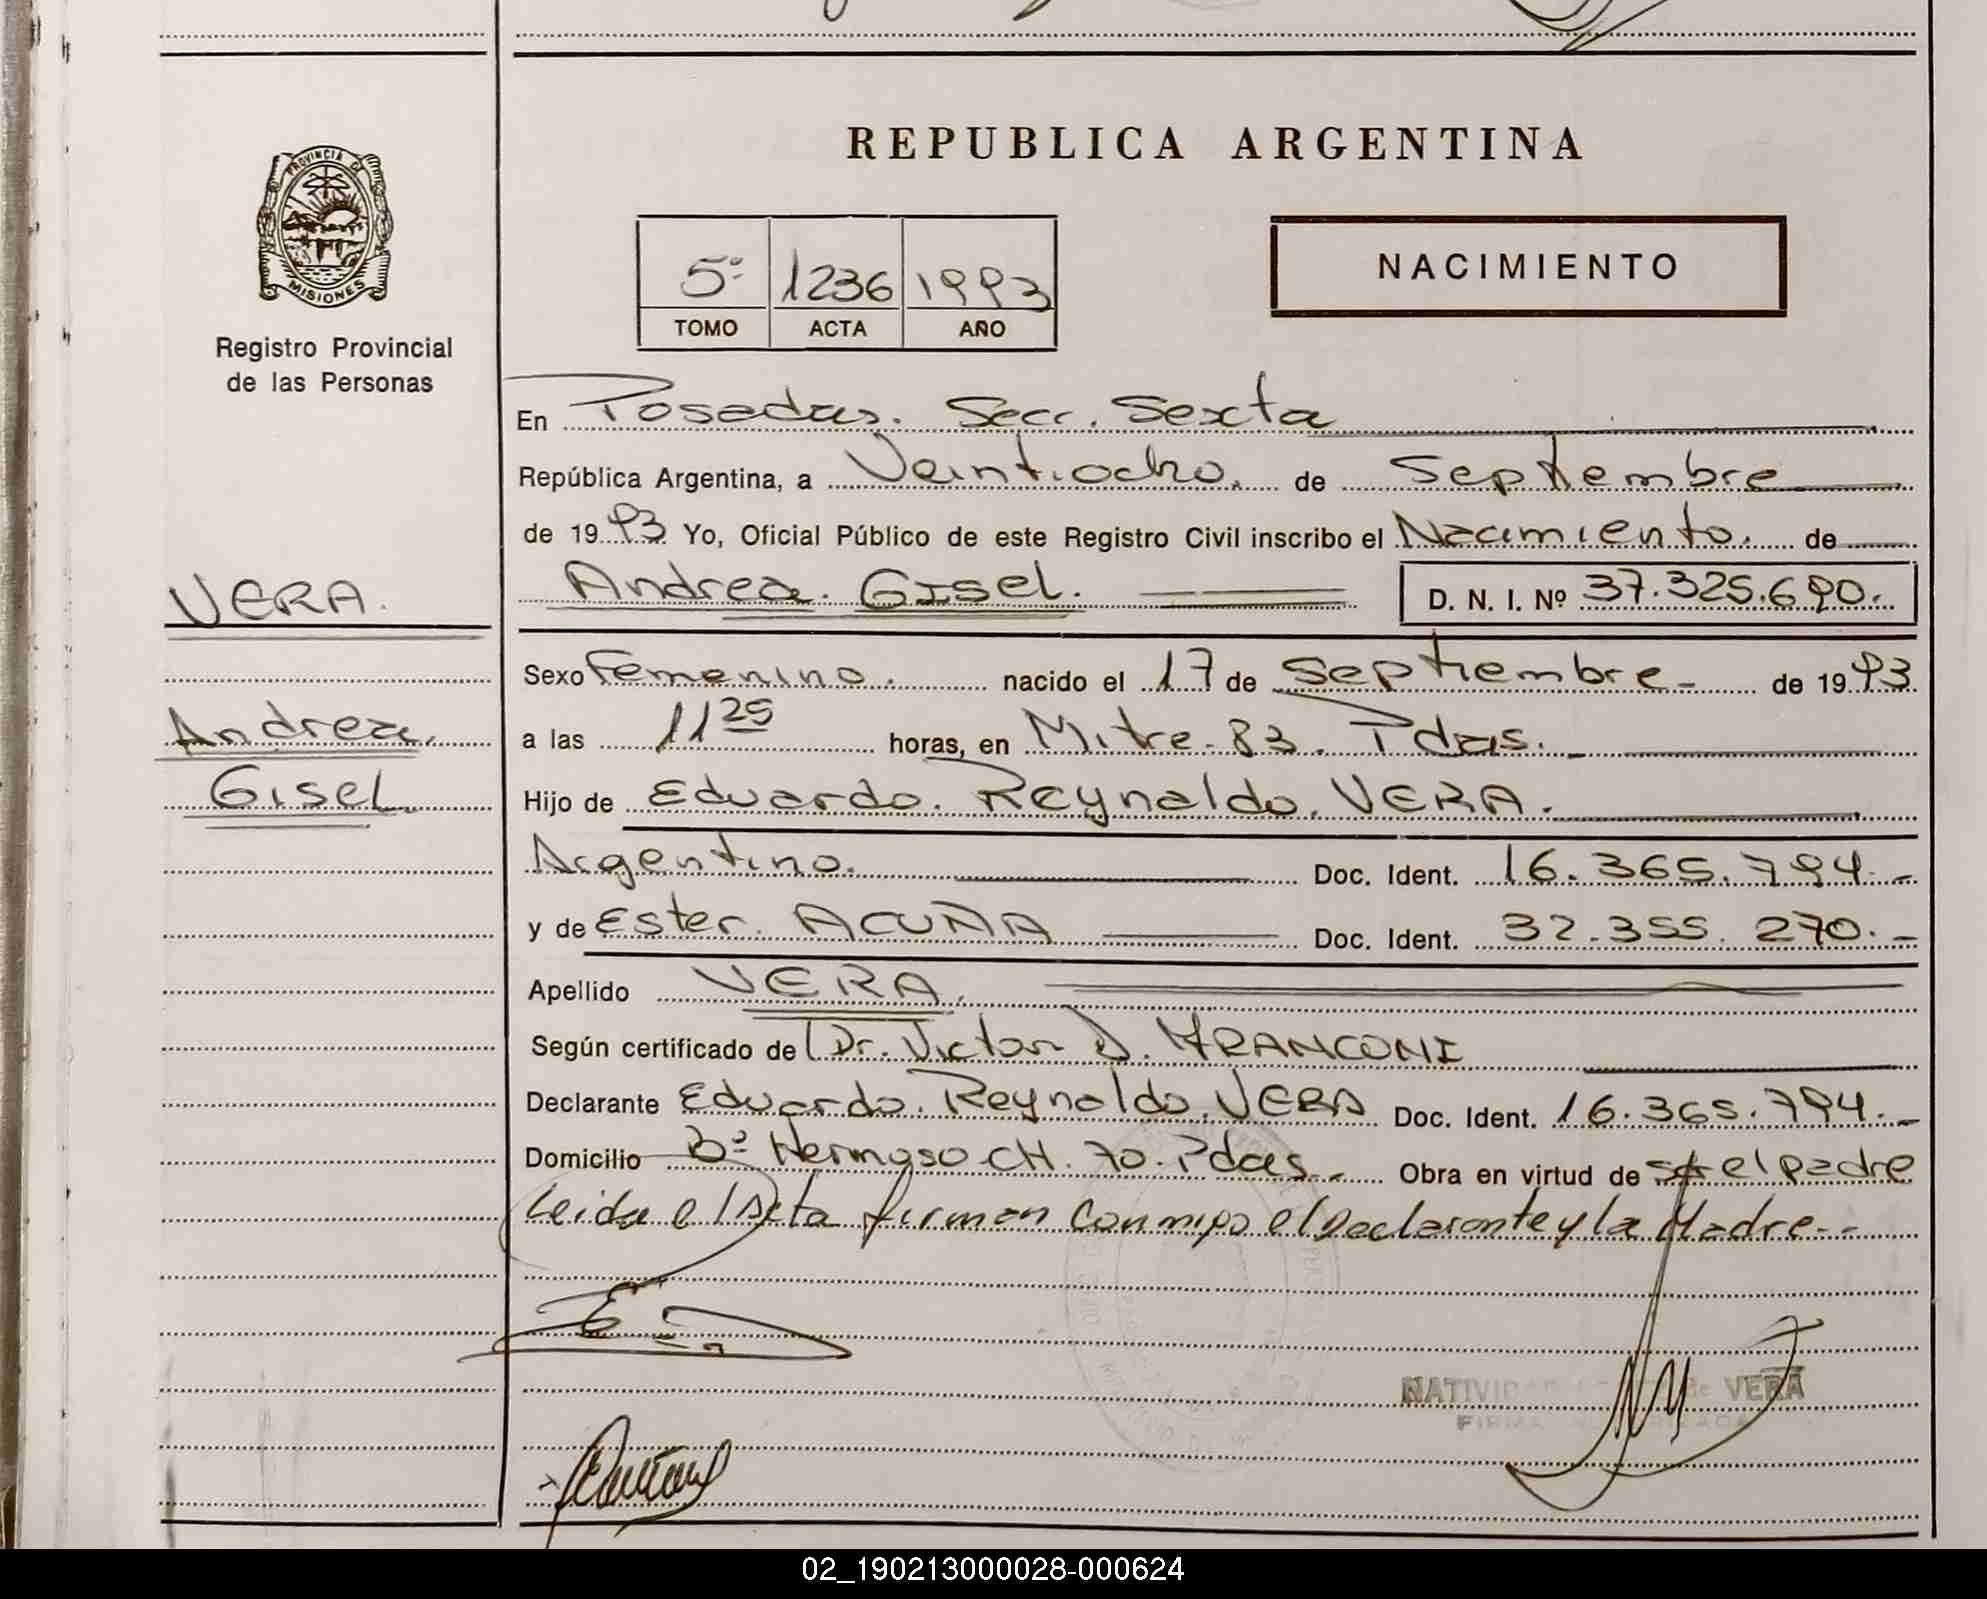 REPUBLICA ARGENTINA
PROVINCIA DE
MISIONES
Registro Provincial
de las Personas
5º 1236 1993
TOMO ACTA AÑO
NACIMIENTO
En Posadas. Secc. Sexta
República Argentina, a Veintiocho. de Septiembre
de 1993 Yo, Oficial Público de este Registro Civil inscribo el Nacimiento. de
VERA.
Andrea. Gisel. D. N. I. Nº 37.325.690.
Sexo Femenino. nacido el 17 de Septiembre- de 1993
Andrea.
a las 11 25 horas, en Mitre-83. Pdas.-
Gisel
Hijo de Eduardo. Reynaldo. VERA.
Argentino. Doc. Ident. 16.365.794.-
y de Ester. ACUÑA Doc. Ident. 32.355.270.-
Apellido VERA.
Según certificado de Dr. Victor D. FRANCONI
Declarante Eduardo. Reynaldo. VERA Doc. Ident. 16.365.794.-
Domicilio Bº Hermoso CH. 70. Pdas.- Obra en virtud de ser el padre
Leida el Acta firman conmigo el Declarante y la Madre--
de VERA
02_190213000028-000624